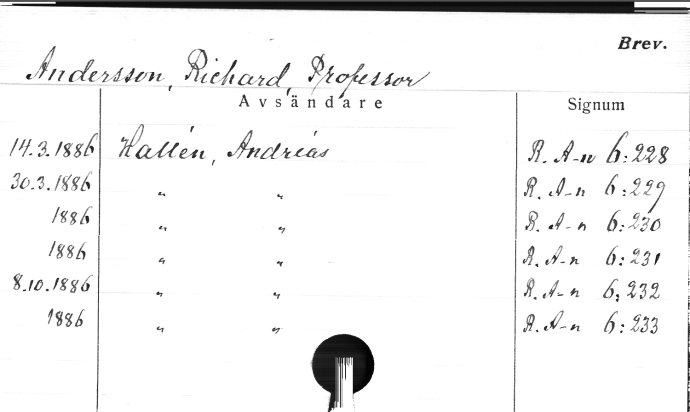 Brev.
Andersson, Richard, Professor
Avsändare Signum
14.3.1886 Hallén, Andréas R. A-n 6:228
30.3.1886 " " R. A-n 6:229
1886 " " R. A-n 6:230
1886 " " R. A-n 6:231
8.10.1886 " " R. A-n 6:232
1886 " " R. A-n 6:233